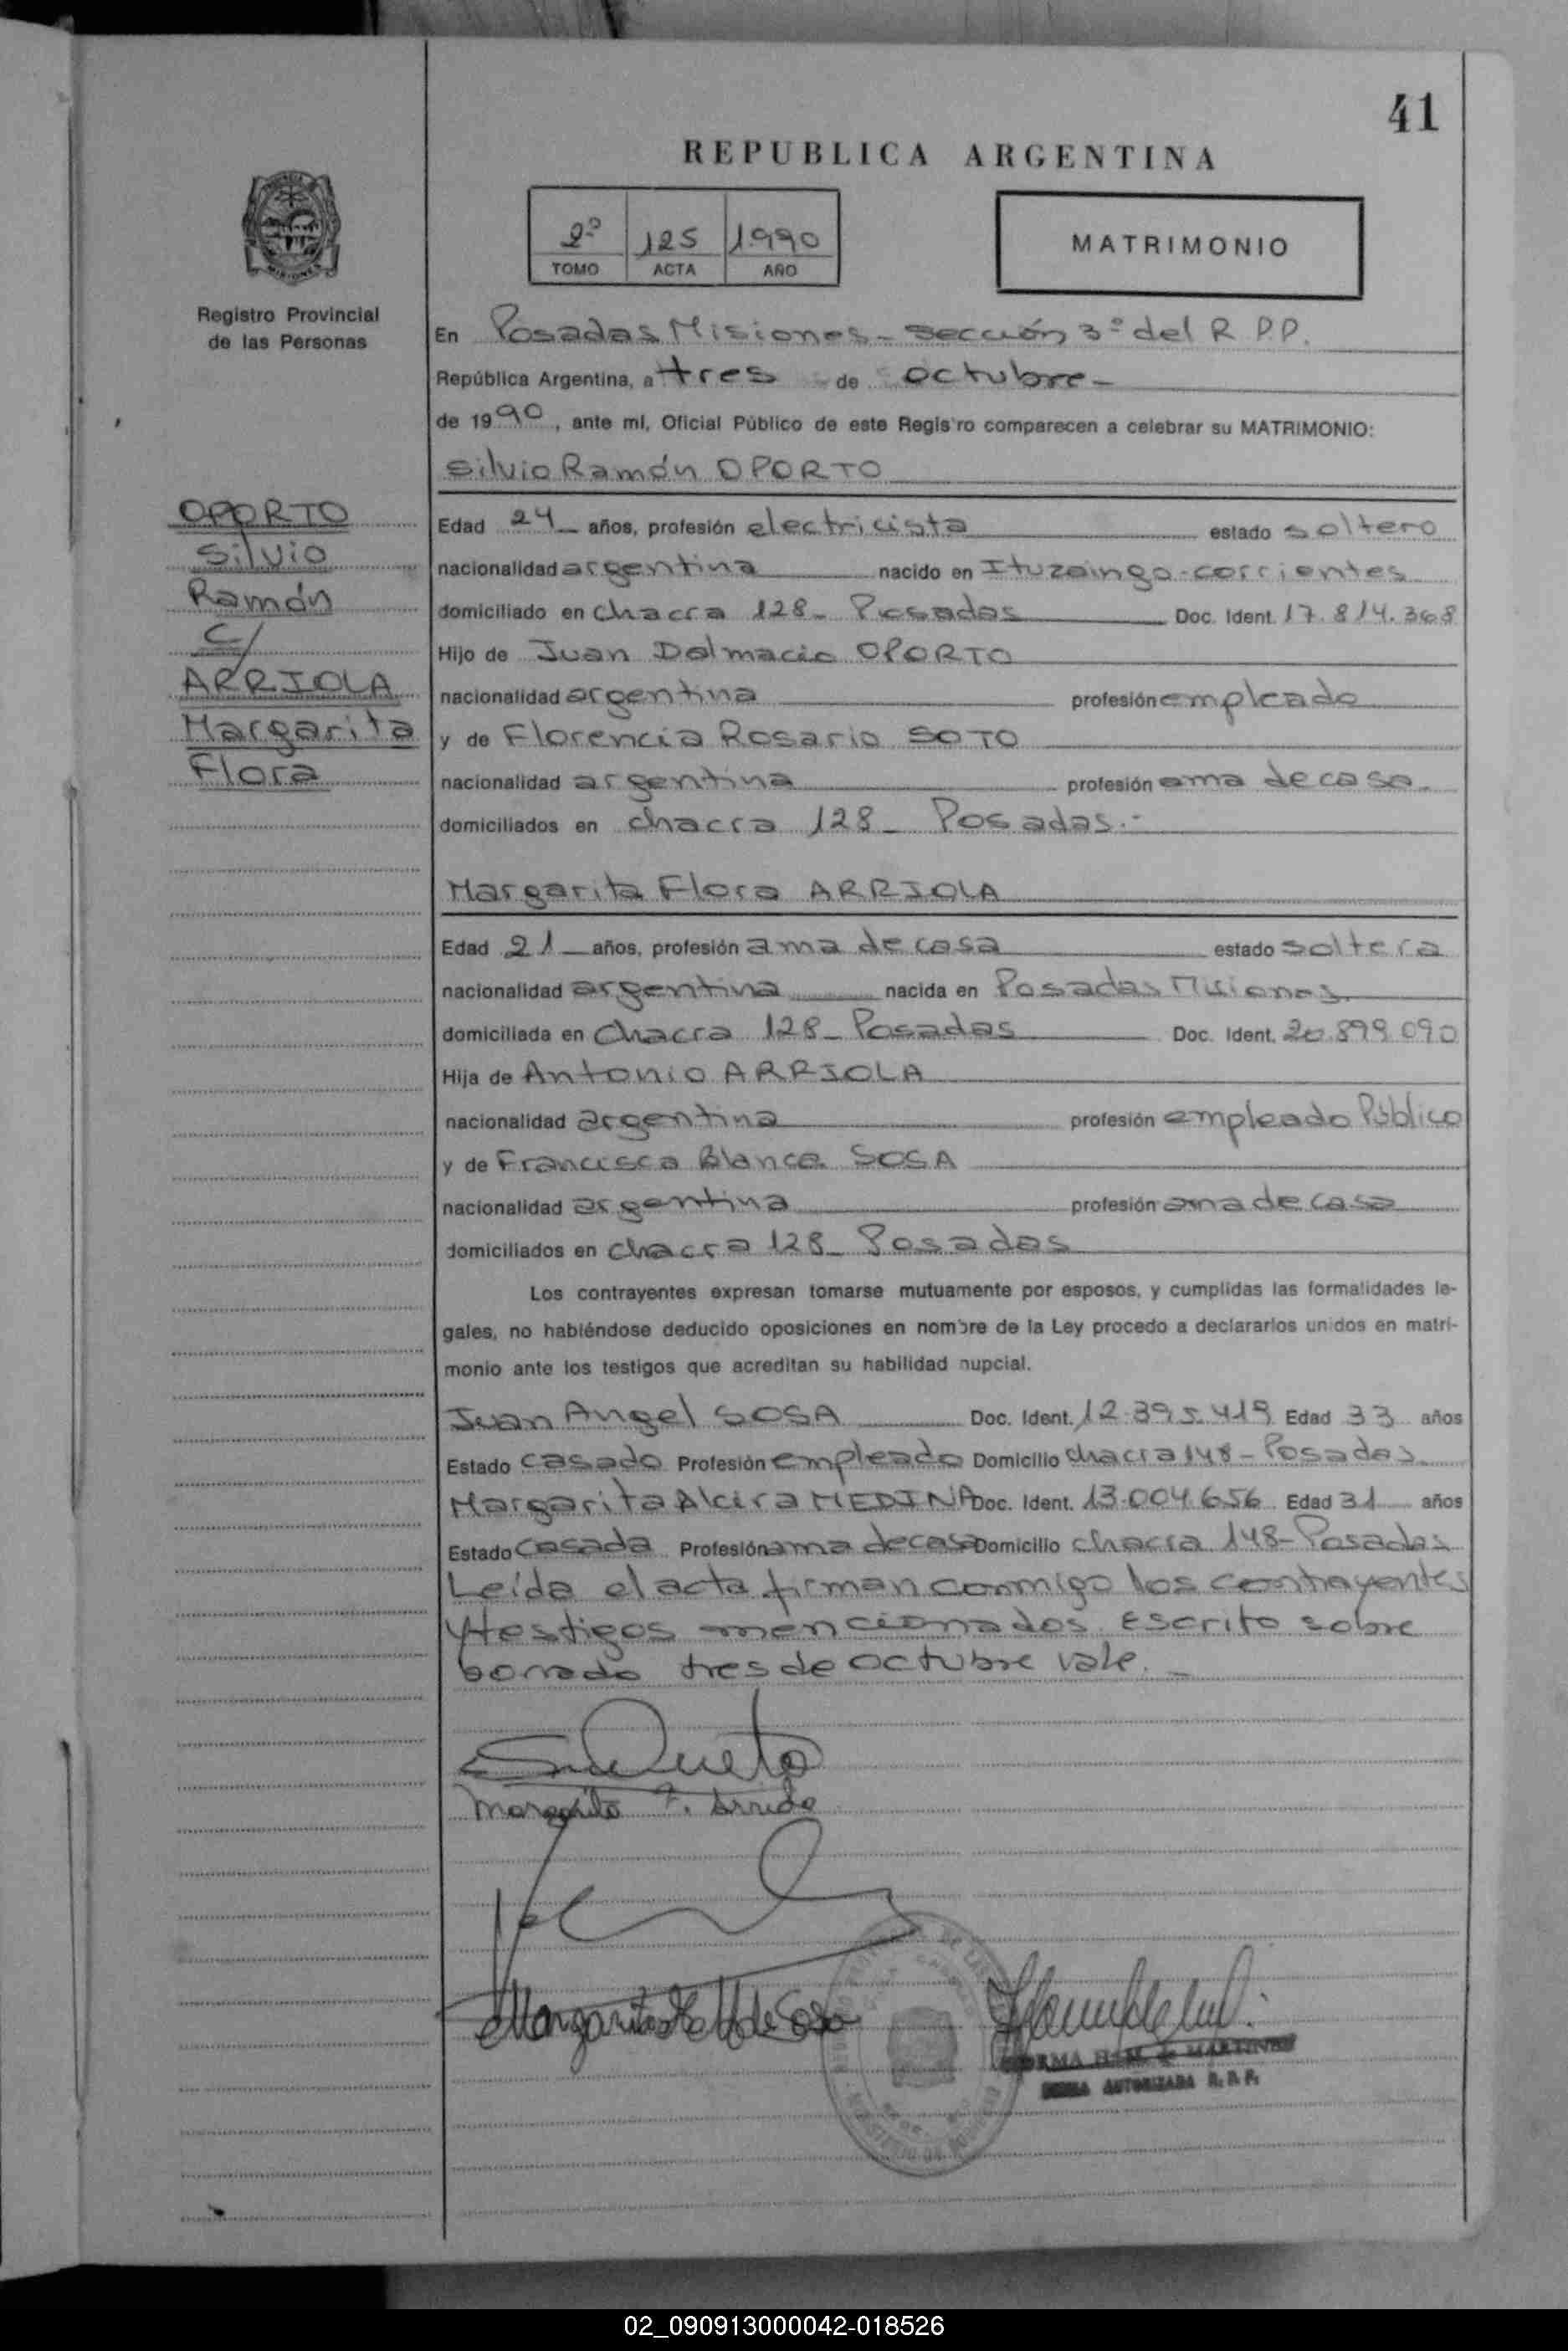 41
REPUBLICA ARGENTINA
2º 125 1990
TOMO ACTA AÑO
MATRIMONIO
Registro Provincial
de las Personas
En Posadas Misiones - sección 3º del R.P.P.
República Argentina, a tres de octubre -
de 1990, ante mí, Oficial Público de este Registro comparecen a celebrar su MATRIMONIO:
Silvio Ramón OPORTO
OPORTO
Silvio
Ramón
c/
ARRIOLA
Margarita
Flora
Edad 24 años, profesión electricista estado soltero
nacionalidad argentina nacido en Ituzaingo - corrientes
domiciliado en chacra 128 - Posadas Doc. Ident. 17.814.368
Hijo de Juan Dalmacio OPORTO
nacionalidad argentina profesión empleado
y de Florencia Rosario SOTO
nacionalidad argentina profesión ama de casa.
domiciliados en chacra 128 - Posadas.-
Margarita Flora ARRIOLA
Edad 21 años, profesión ama de casa estado soltera
nacionalidad argentina nacida en Posadas Misiones
domiciliada en Chacra 128 - Posadas Doc. Ident. 20.899.090
Hija de Antonio ARRIOLA
nacionalidad argentina profesión empleado Público
y de Francisca Blanca SOSA
nacionalidad argentina profesión ama de casa
domiciliados en chacra 128 - Posadas
Los contrayentes expresan tomarse mutuamente por esposos, y cumplidas las formalidades le-
gales, no habiéndose deducido oposiciones en nombre de la Ley procedo a declararlos unidos en matri-
monio ante los testigos que acreditan su habilidad nupcial.
Juan Angel SOSA Doc. Ident. 12.395.419 Edad 33 años
Estado casado Profesión empleado Domicilio chacra 148 - Posadas
Margarita Alcira MEDINA Doc. Ident. 13.004.656 Edad 31 años
Estado casada Profesión ama de casa Domicilio chacra 148 - Posadas
Leída el acta firman conmigo los contrayentes
y testigos mencionados. Escrito sobre
borrado tres de octubre vale.-
Margarita F. Arriola
Margarita M de Sosa
NORMA de MARTINEZ
FIRMA AUTORIZADA R.P.P.
02_090913000042-018526